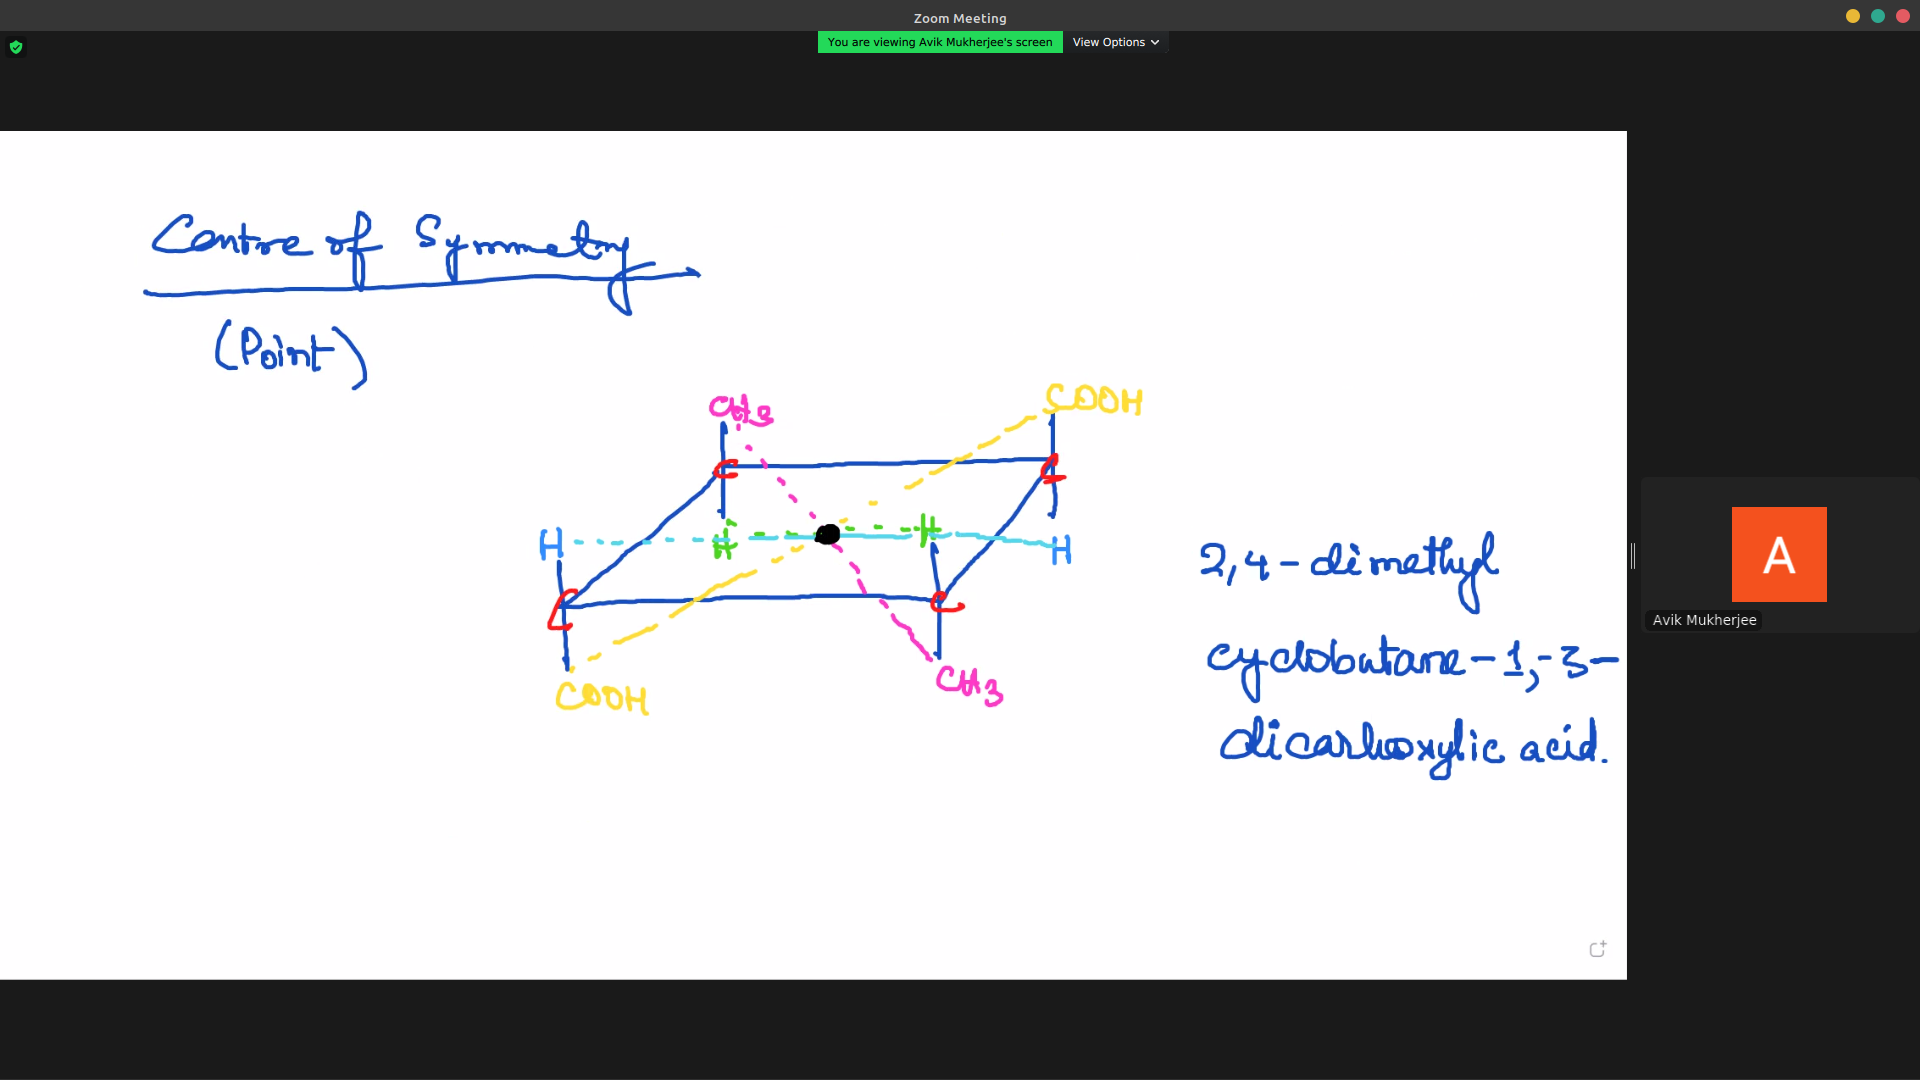 Zoom Meeting
You are viewing Avik Mukherjee's screen View Options
Centre of Symmetry
(Point)
CH3 COOH
C C
H H H H
C C
COOH CH3
2,4-dimethyl
cyclobutane-1,-3-
dicarboxylic acid.
A
Avik Mukherjee